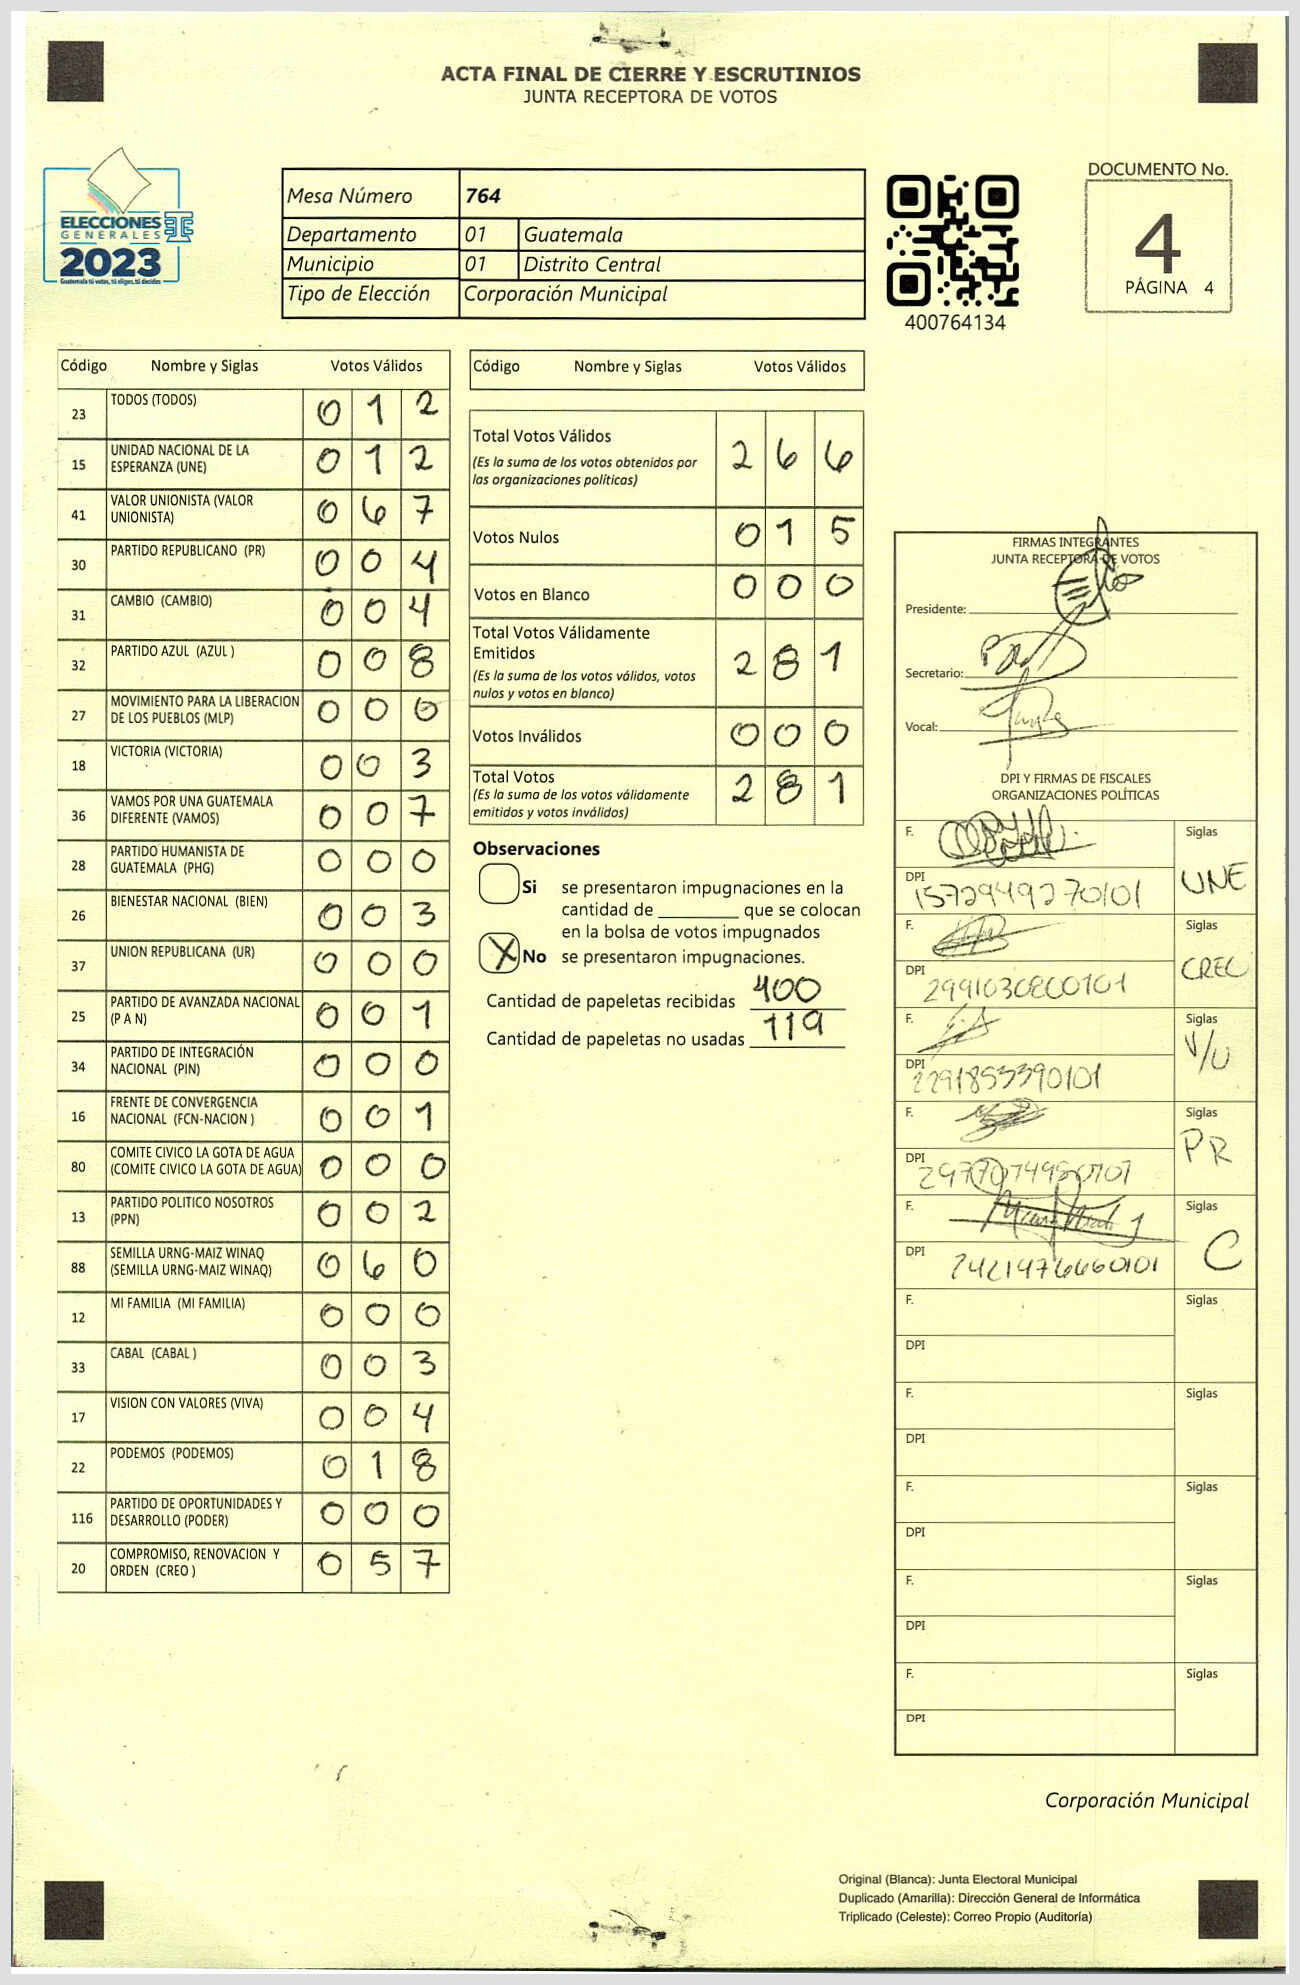 ACTA FINAL DE CIERRE Y ESCRUTINIOS
JUNTA RECEPTORA DE VOTOS
ELECCIONES
GENERALES
2023
Guatemala tú votas, tú eliges, tú decides
Mesa Número 764
Departamento 01 Guatemala
Municipio 01 Distrito Central
Tipo de Elección Corporación Municipal
400764134
DOCUMENTO No.
4
PÁGINA 4
Código Nombre y Siglas Votos Válidos
23 TODOS (TODOS) 0 1 2
15 UNIDAD NACIONAL DE LA
ESPERANZA (UNE) 0 1 2
41 VALOR UNIONISTA (VALOR
UNIONISTA) 0 6 7
30 PARTIDO REPUBLICANO (PR) 0 0 4
31 CAMBIO (CAMBIO) 0 0 4
32 PARTIDO AZUL (AZUL ) 0 0 8
27 MOVIMIENTO PARA LA LIBERACION
DE LOS PUEBLOS (MLP) 0 0 0
18 VICTORIA (VICTORIA) 0 0 3
36 VAMOS POR UNA GUATEMALA
DIFERENTE (VAMOS) 0 0 7
28 PARTIDO HUMANISTA DE
GUATEMALA (PHG) 0 0 0
26 BIENESTAR NACIONAL (BIEN) 0 0 3
37 UNION REPUBLICANA (UR) 0 0 0
25 PARTIDO DE AVANZADA NACIONAL
(P A N) 0 0 1
34 PARTIDO DE INTEGRACIÓN
NACIONAL (PIN) 0 0 0
16 FRENTE DE CONVERGENCIA
NACIONAL (FCN-NACION ) 0 0 1
80 COMITE CIVICO LA GOTA DE AGUA
(COMITE CIVICO LA GOTA DE AGUA) 0 0 0
13 PARTIDO POLITICO NOSOTROS
(PPN) 0 0 2
88 SEMILLA URNG-MAIZ WINAQ
(SEMILLA URNG-MAIZ WINAQ) 0 6 0
12 MI FAMILIA (MI FAMILIA) 0 0 0
33 CABAL (CABAL ) 0 0 3
17 VISION CON VALORES (VIVA) 0 0 4
22 PODEMOS (PODEMOS) 0 1 8
116 PARTIDO DE OPORTUNIDADES Y
DESARROLLO (PODER) 0 0 0
20 COMPROMISO, RENOVACION Y
ORDEN (CREO ) 0 5 7
Código Nombre y Siglas Votos Válidos
Total Votos Válidos 2 6 6
(Es la suma de los votos obtenidos por
las organizaciones políticas)
Votos Nulos 0 1 5
Votos en Blanco 0 0 0
Total Votos Válidamente
Emitidos 2 8 1
(Es la suma de los votos válidos, votos
nulos y votos en blanco)
Votos Inválidos 0 0 0
Total Votos 2 8 1
(Es la suma de los votos válidamente
emitidos y votos inválidos)
Observaciones
Si se presentaron impugnaciones en la
cantidad de ________ que se colocan
en la bolsa de votos impugnados
X No se presentaron impugnaciones.
Cantidad de papeletas recibidas 400
Cantidad de papeletas no usadas 119
FIRMAS INTEGRANTES
JUNTA RECEPTORA DE VOTOS
Presidente:
Secretario:
Vocal:
DPI Y FIRMAS DE FISCALES
ORGANIZACIONES POLÍTICAS
F. Siglas
DPI 1572949270101 UNE
F. Siglas
DPI CREO
F. Siglas
DPI 2291853390101 V/U
F. Siglas
DPI PR
F. Siglas
DPI 2421476660101 C
F. Siglas
DPI
F. Siglas
DPI
F. Siglas
DPI
F. Siglas
DPI
F. Siglas
DPI
Corporación Municipal
Original (Blanca): Junta Electoral Municipal
Duplicado (Amarilla): Dirección General de Informática
Triplicado (Celeste): Correo Propio (Auditoría)